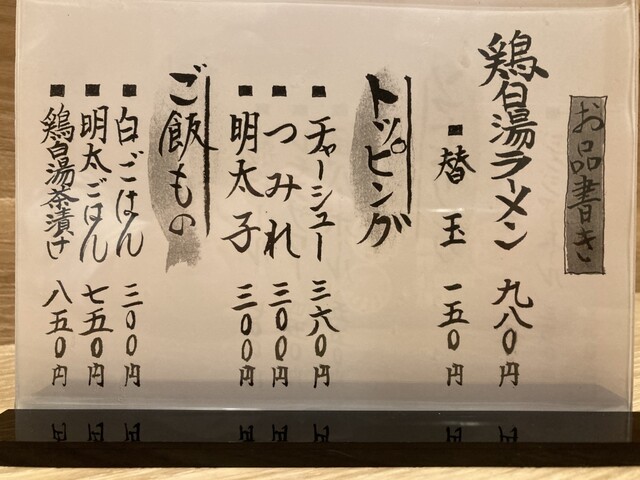 お品書き
鶏白湯ラーメン 九八〇円
■替玉 一五〇円
トッピング
■チャーシュー 三六〇円
■つみれ 三〇〇円
■明太子 三〇〇円
ご飯もの
■白ごはん 三〇〇円
■明太ごはん 七五〇円
■鶏白湯茶漬け 八五〇円